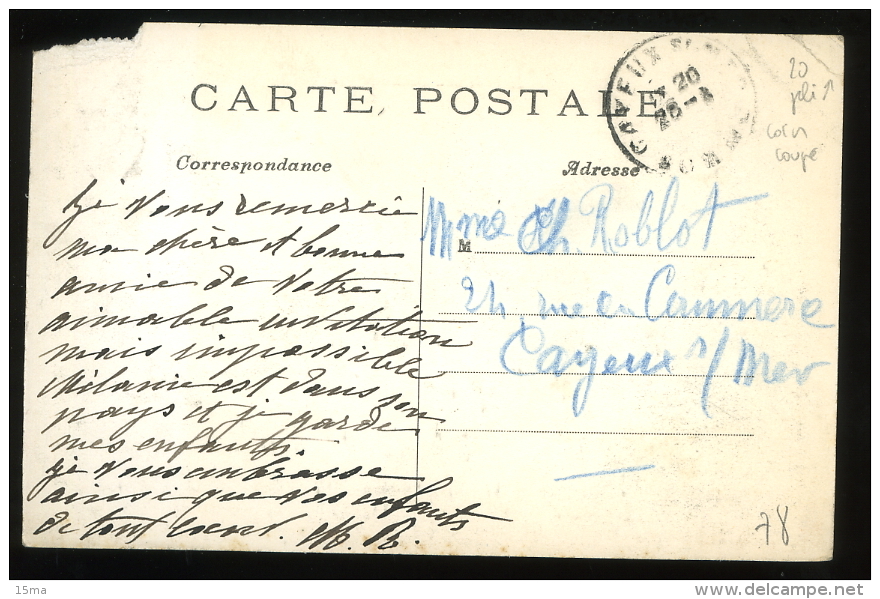 CARTE POSTALE
CAYEUX S/ MER
20
26-4
SOMME
20
pli
coin
coupé
Correspondance
Adresse
Je Vous remercie
ma chère et bonne
amie de Votre
aimable invitation
mais impossible
Mélanie est dans son
pays et je garde
mes enfants
je Vous embrasse
ainsi que Vos enfants
de tout coeur. M. R.
M
Mme Ch. Roblot
24, rue du Commerce
Cayeux s/ Mer
78
15ma
delcampe.net